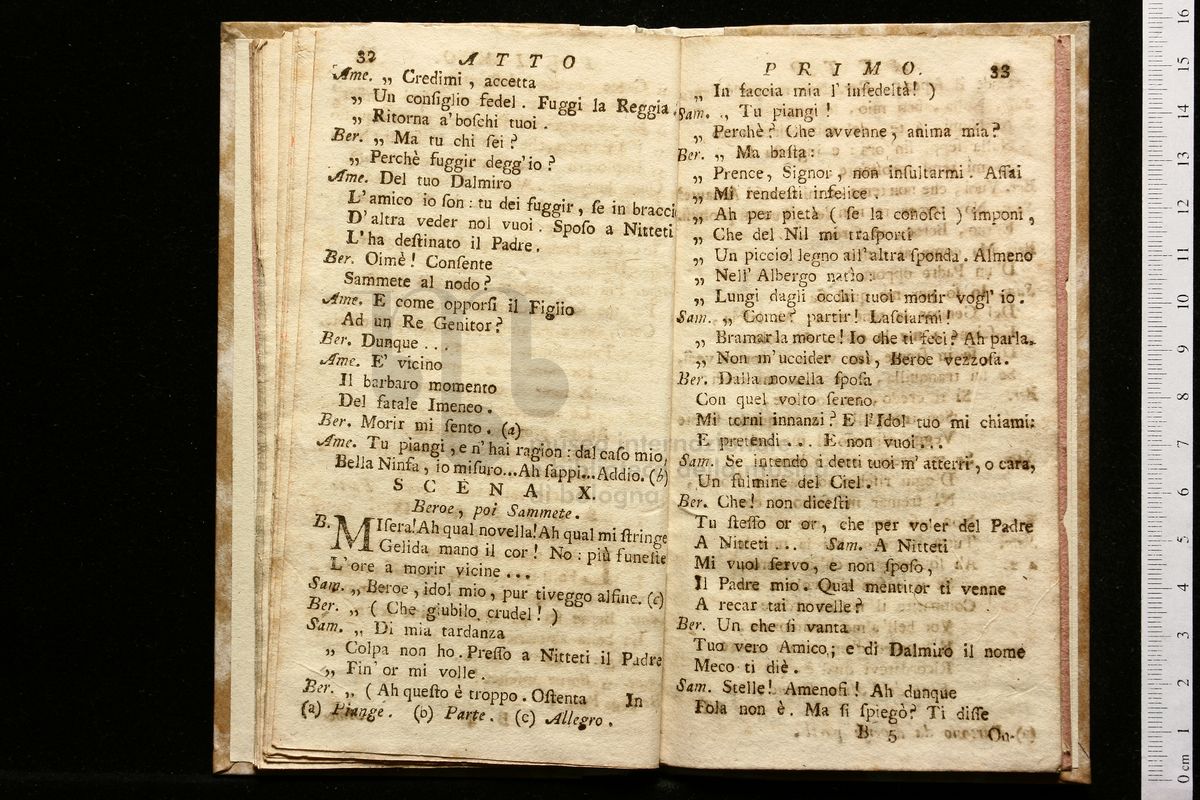 32 ATTO
Ame. „ Credimi, accetta
„ Un configlio fedel. Fuggi la Reggia,
„ Ritorna a' boſchi tuoi.
Ber. „ Ma tu chi ſei?
„ Perchè fuggir degg' io?
Ame. Del tuo Dalmiro
L'amico io ſon: tu dei fuggir, ſe in bracci
D'altra veder nol vuoi. Spoſo a Nitteti
L'ha deſtinato il Padre.
Ber. Oimè! Conſente
Sammete al nodo?
Ame. E come opporſi il Figlio
Ad un Re Genitor?
Ber. Dunque...
Ame. E' vicino
Il barbaro momento
Del fatale Imeneo.
Ber. Morir mi ſento. (a)
Ame. Tu piangi, e n' hai ragion: dal caſo mio,
Bella Ninfa, io miſuro... Ah ſappi... Addio. (b)
SCENA X.
Beroe, poi Sammete.
B. MIſera! Ah qual novella! Ah qual mi ſtringe
Gelida mano il cor! No: più funeſte
L'ore a morir vicine...
Sam. „ Beroe, idol mio, pur ti veggo alfine. (c)
Ber. „ ( Che giubilo crudel! )
Sam. „ Di mia tardanza
„ Colpa non ho. Preſſo a Nitteti il Padre
„ Fin' or mi volle.
Ber. „ ( Ah queſto è troppo. Oſtenta
In
(a) Piange. (b) Parte. (c) Allegro.
PRIMO. 33
„ In faccia mia l' infedeltà! )
Sam. „ Tu piangi!
„ Perchè? Che avvenne, anima mia?
Ber. „ Ma baſta:
„ Prence, Signor, non inſultarmi. Aſſai
„ Mi rendeſti infelice.
„ Ah per pietà ( ſe la conoſci ) imponi,
„ Che del Nil mi traſporti
„ Un picciol legno all'altra ſponda. Almeno
„ Nell' Albergo natìo:
„ Lungi dagli occhi tuoi morir vogl' io.
Sam. „ Come? partir! Laſciarmi!
„ Bramar la morte! Io che ti feci? Ah parla.
„ Non m'uccider così, Beroe vezzoſa.
Ber. Dalla novella ſpoſa
Con quel volto ſereno
Mi torni innanzi? E l'Idol tuo mi chiami:
E pretendi... E non vuoi...
Sam. Se intendo i detti tuoi m' atterri, o cara,
Un fulmine del Ciel.
Ber. Che! non diceſti
Tu ſteſſo or or, che per voler del Padre
A Nitteti .. Sam. A Nitteti
Mi vuol ſervo, e non ſpoſo,
Il Padre mio. Qual mentitor ti venne
A recar tai novelle?
Ber. Un che ſi vanta
Tuo vero Amico; e di Dalmiro il nome
Meco ti diè.
Sam. Stelle! Amenofi! Ah dunque
Fola non è. Ma ſi ſpiegò? Ti diſſe
B 5 On-
museo internazionale
di bologna
0 cm 1 2 3 4 5 6 7 8 9 10 11 12 13 14 15 16